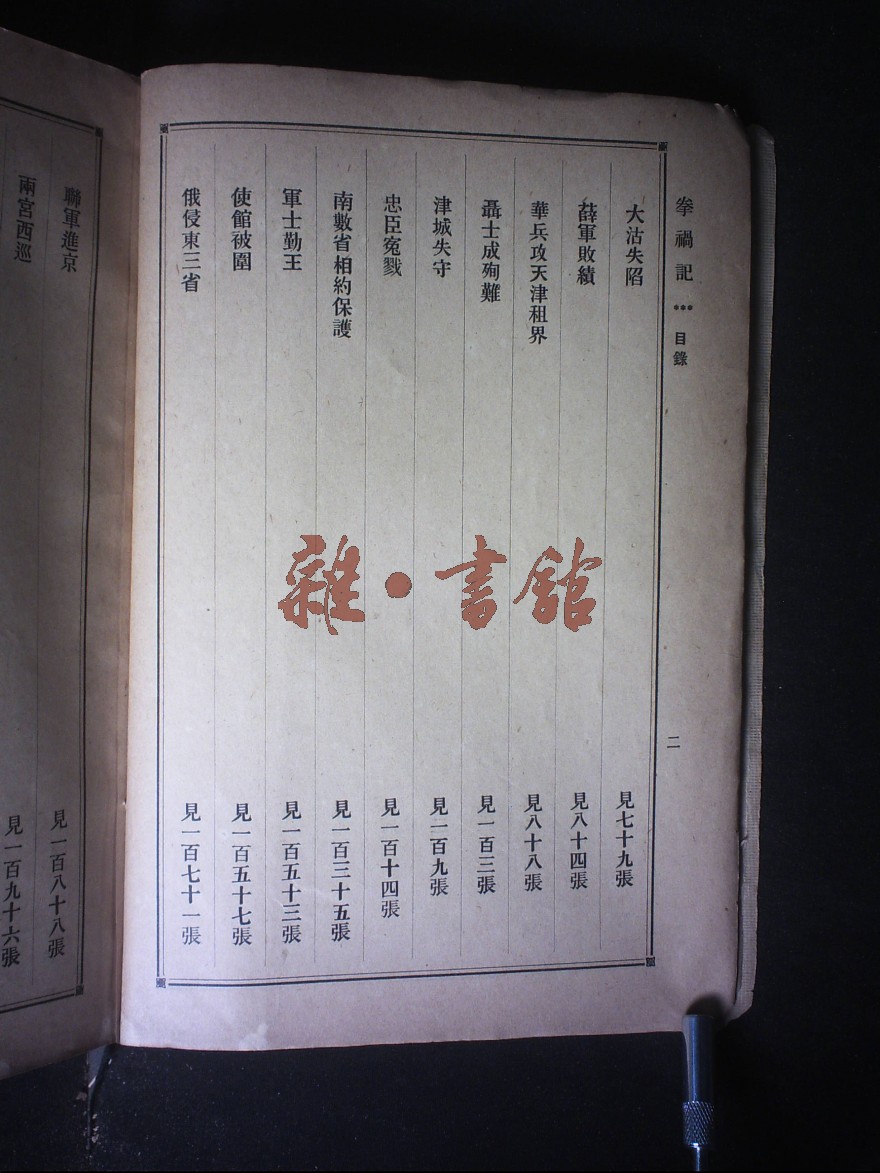 拳禍記 *** 目錄
二
大沽失陷 見七十九張
薛軍敗績 見八十四張
華兵攻天津租界 見八十八張
聶士成殉難 見一百三張
津城失守 見一百九張
忠臣寃戮 見一百十四張
南數省相約保護 見一百三十五張
軍士勤王 見一百五十三張
使館被圍 見一百五十七張
俄侵東三省 見一百七十一張
聯軍進京 見一百八十八張
兩宮西巡 見一百九十六張
雜·書館